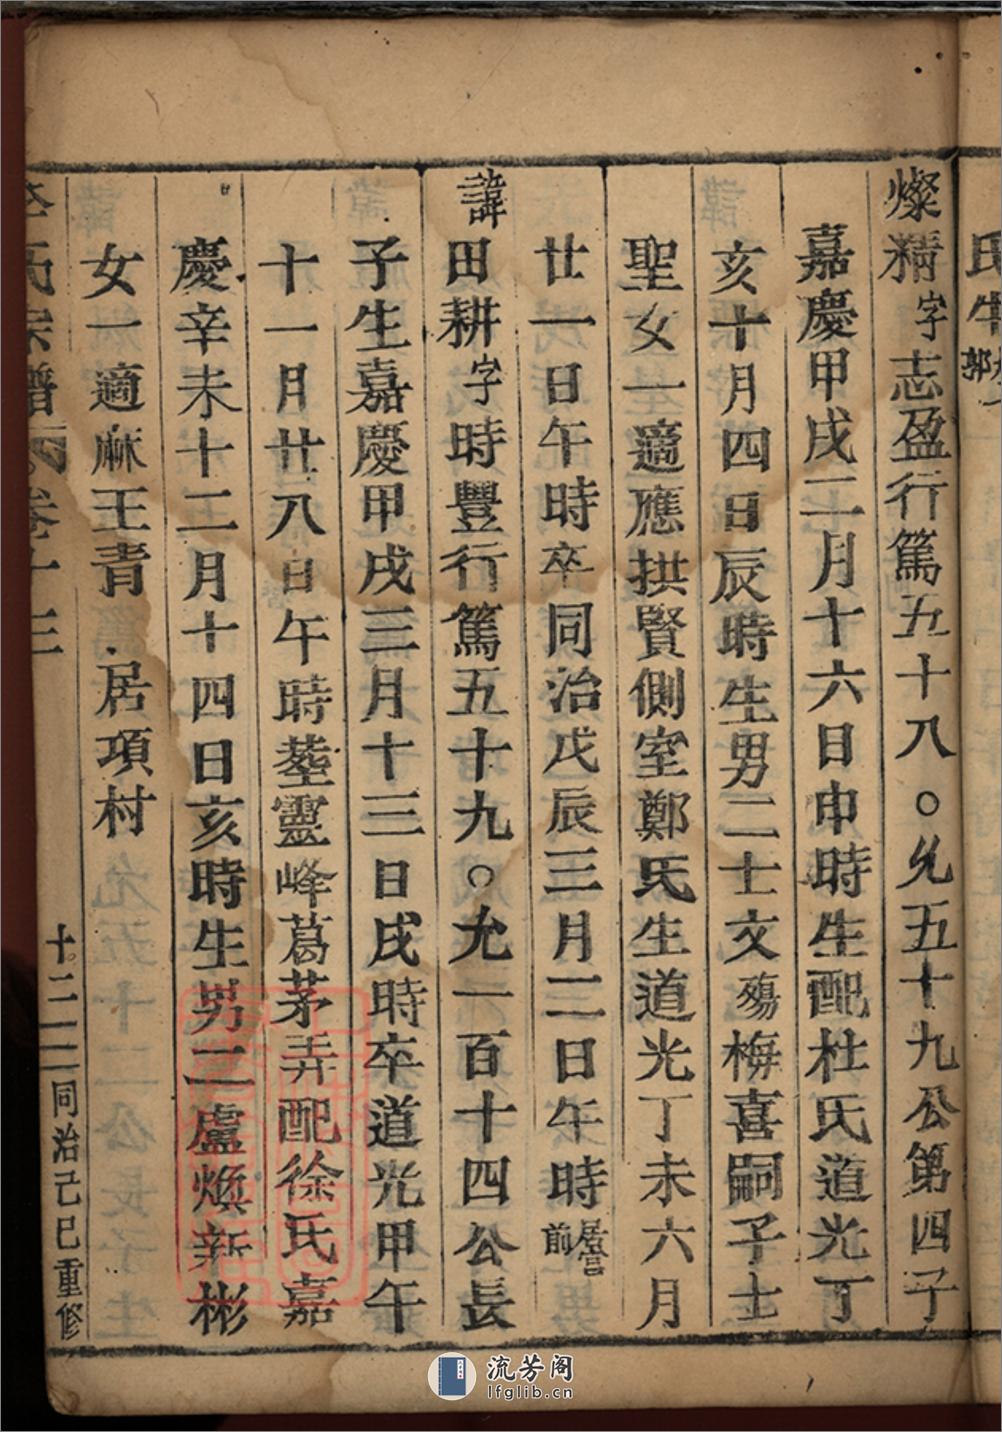 氏生
郭
燦精字志盈行篤五十八○允五十九公第四子
嘉慶甲戌二月十六日申時生配杜氏道光丁
亥十月四日辰時生男二士交殤梅喜嗣子士
聖女一適應拱賢側室鄭氏生道光丁未六月
廿一日午時卒同治戊辰三月二日午時居官前
諱田耕字時豐行篤五十九○允一百十四公長
子生嘉慶甲戌三月十三日戌時卒道光甲午
十一月廿八日午時塟靈峰葛茅弄配徐氏嘉
慶辛未十二月十四日亥時生男二盧煥新彬
女一適麻王青 居項村
李氏宗譜 卷十三 十二 同治己巳重修
流芳阁
lfglib.cn